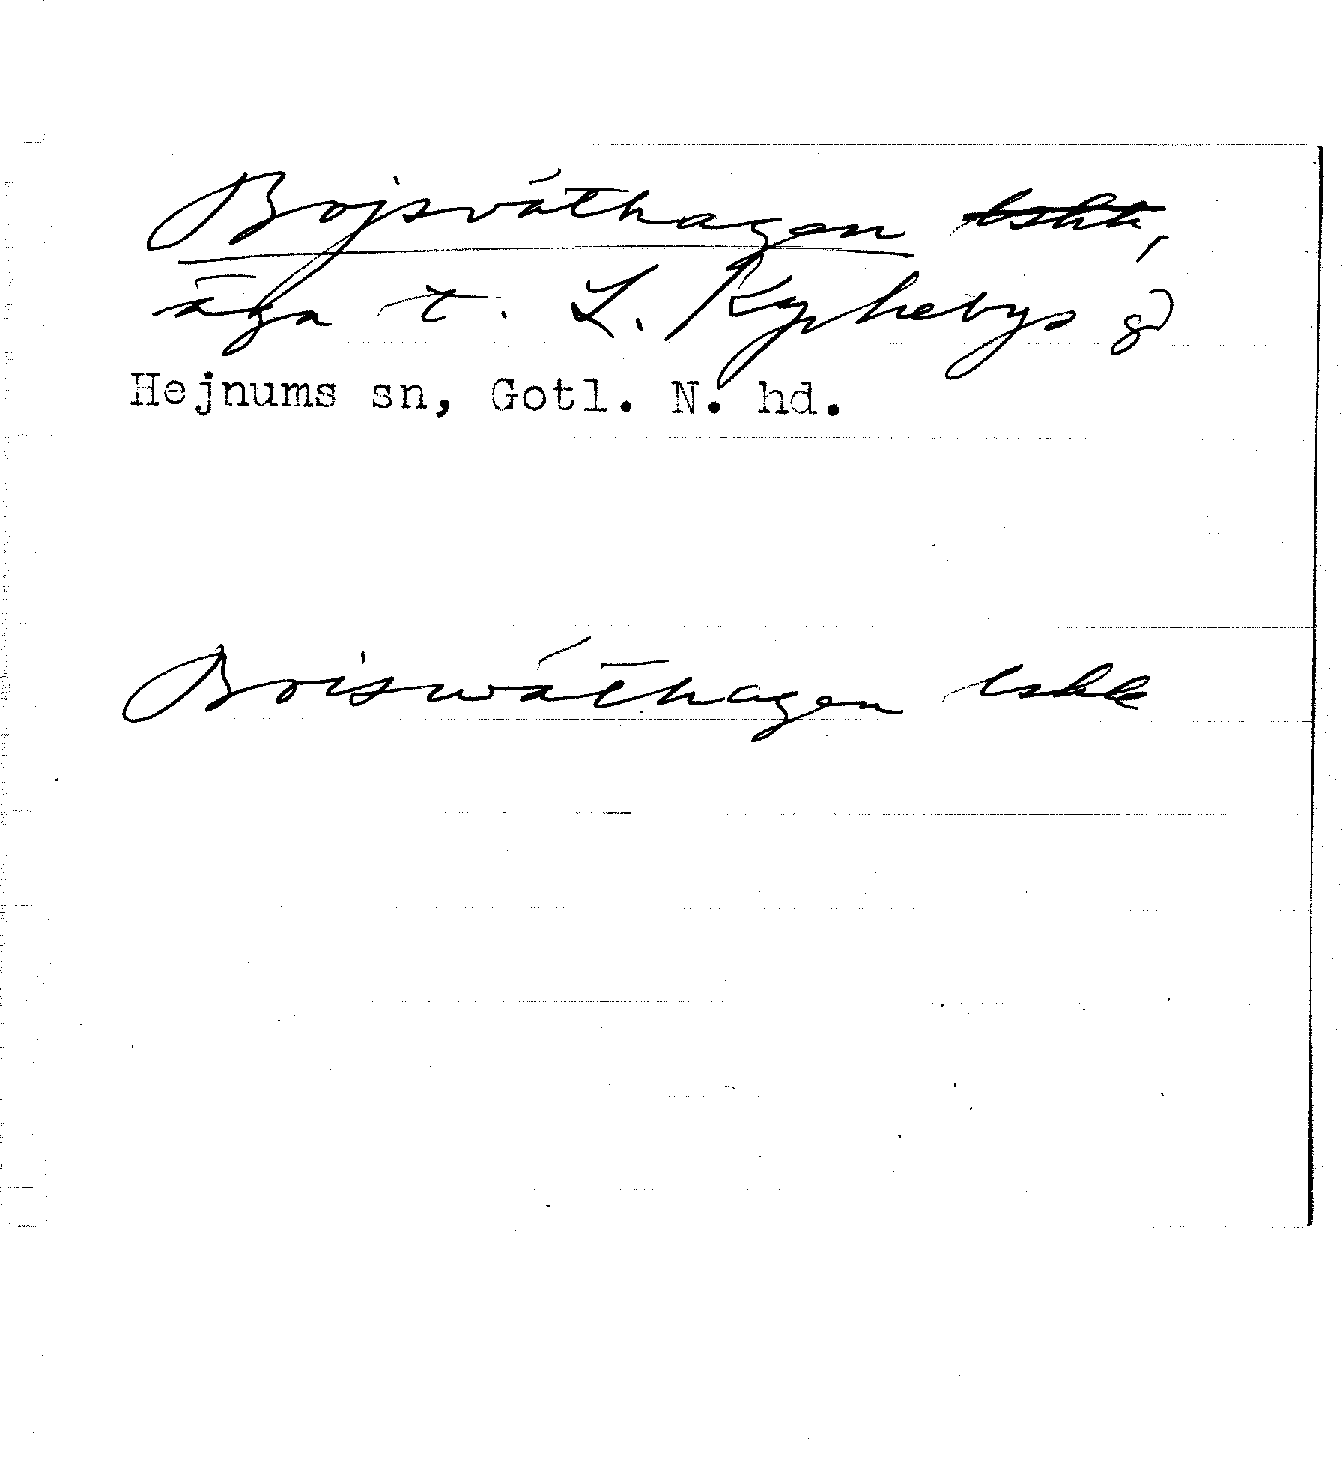 Bojsväthagen
äga t. L. Kyrkebys g
Hejnums sn, Gotl. N. hd.
Boiswäthagen